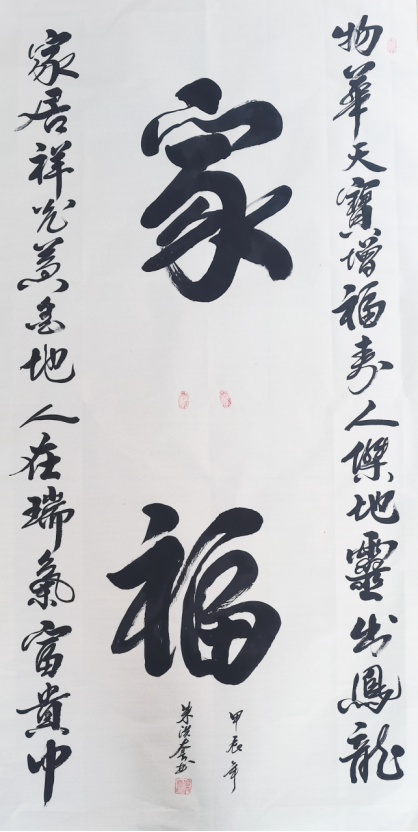 物華天寶增福壽人傑地靈出鳳龍
家福
甲辰年
朱洪奎书
家居祥光地人在瑞氣富貴中